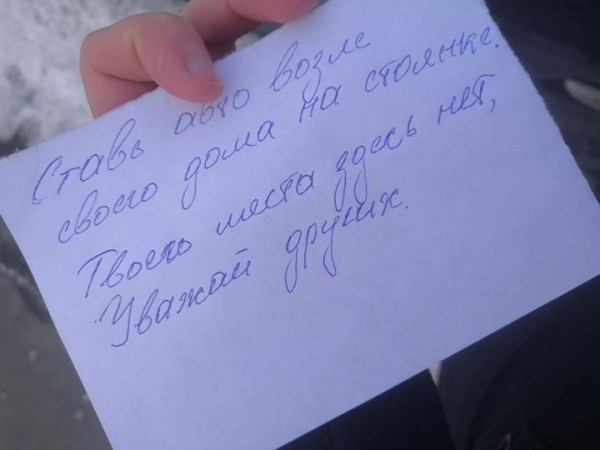 Ставь авто возле
своего дома на стоянке.
Твоего места здесь нет,
Уважай других.